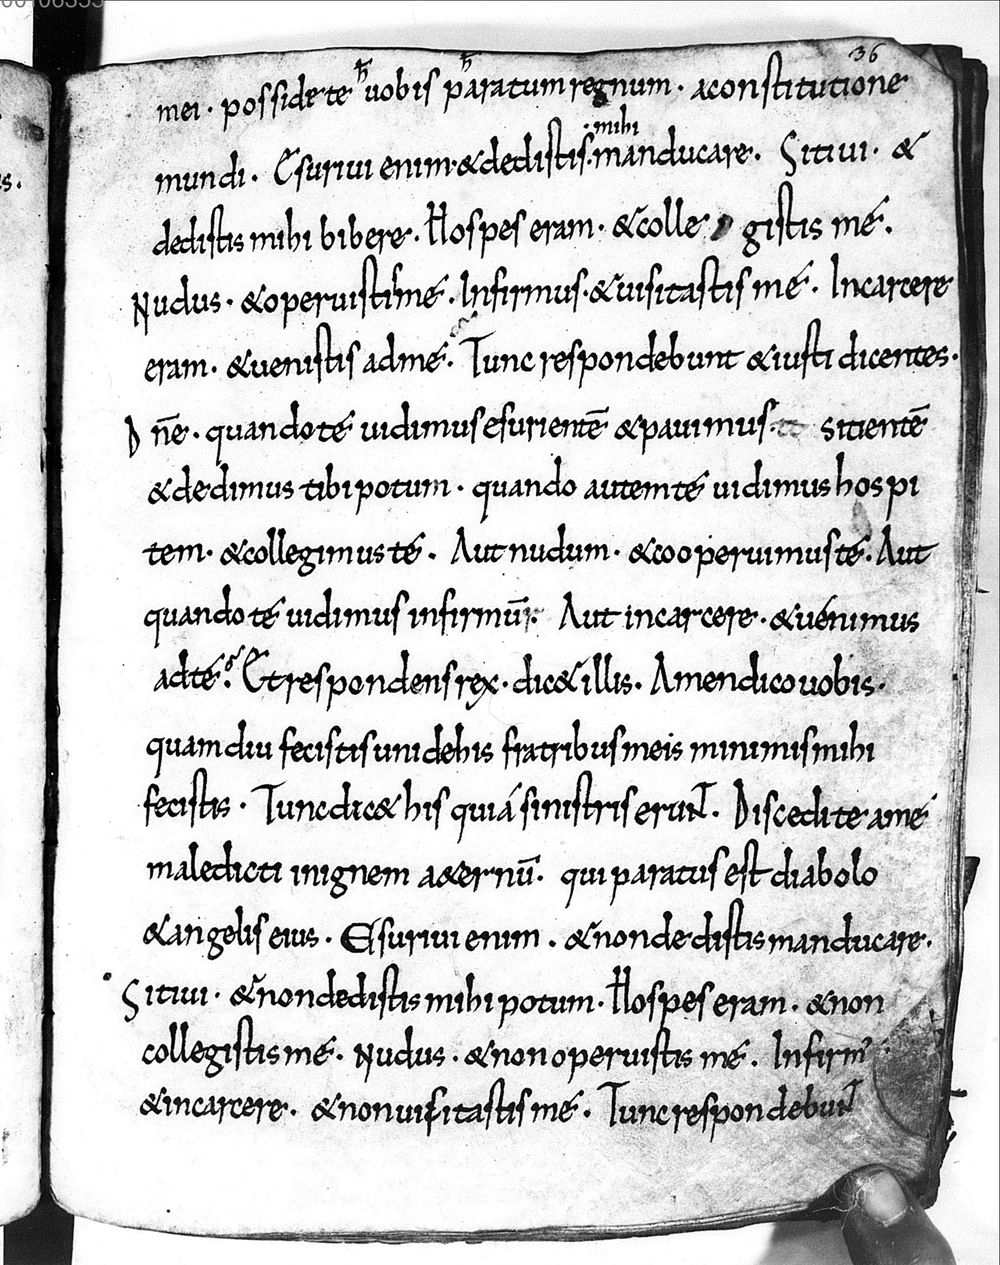 36
mei · possidete uobis paratum regnum · aconstitutione
mihi
mundi · Esuriui enim · & dedistis manducare · Sitiui · &
dedistis mihi bibere · Hospes eram · & collegistis mé ·
Nudus · & operuistis mé · Infirmus · & uisitastis mé · Incarcere
eram · & uenistis ad mé · Tunc respondebunt & iusti dicentes ·
Dn̄e · quando té uidimus esurientē & pauimus · sitientē
& dedimus tibi potum · quando autem té uidimus hospi
tem · & collegimus té · Aut nudum · & cooperuimus té · Aut
quando té uidimus infirmū · Aut incarcere · & uénimus
ad té · Et respondens rex · dic& illis · Amen dico uobis ·
quamdiu fecistis uni de his fratribus meis minimis mihi
fecistis · Tunc dic& his qui á sinistris erunt · Discedite a mé
maledicti in ignem a&ernū · qui paratus est diabolo
& angelis eius · Esuriui enim · & non dedistis manducare ·
Sitiui · & non dedistis mihi potum · Hospes eram · & non
collegistis mé · Nudus · & non operuistis mé · Infirm'
& incarcere · & non uisitastis mé · Tunc respondebunt